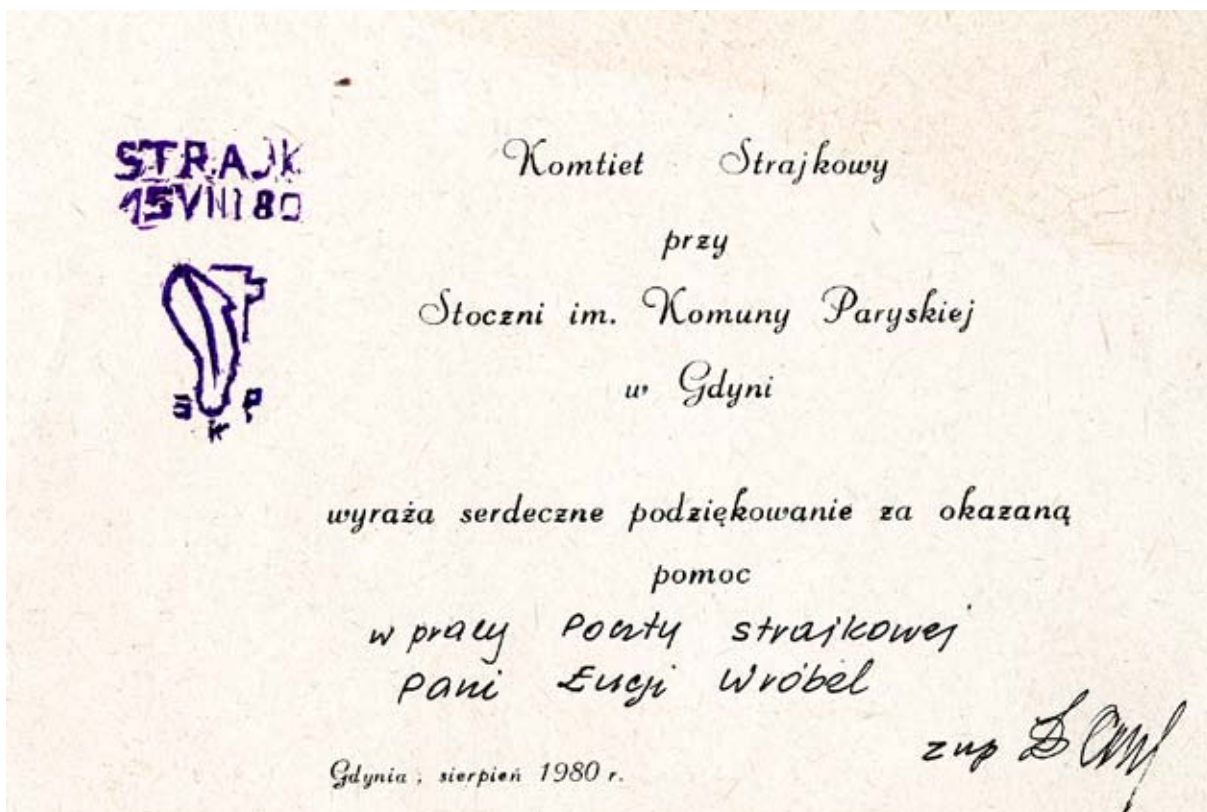 STRAJK
15 VIII 80
S K P
Komtiet Strajkowy
przy
Stoczni im. Komuny Paryskiej
w Gdyni
wyraża serdeczne podziękowanie za okazaną
pomoc
w pracy Poczty strajkowej
Pani Łucji Wróbel
Gdynia, sierpień 1980 r.